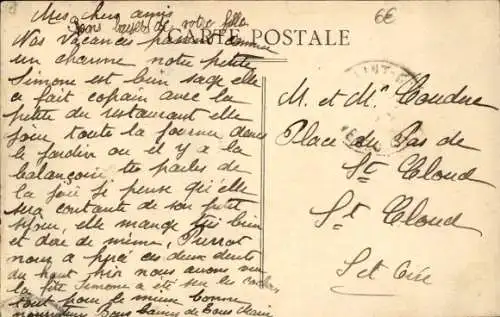 Mes chers amis
Bons baisers de votre fille
6€
CARTE POSTALE
Nos vacances passent comme
un charme notre petite
Simone est bien sage elle
a fait copain avec la
petite du restaurant elle
joue toute la journée dans
le jardin ou il y a la
balançoire tu parles de
la joie je pense qu'elle
sera contante de son petit
séjour, elle mange très bien
et dort de même, Pierrot
nous a percé ces deux dents
du haut hier nous avons vu
la fête Simone a été sur les
tout pour le mieux comme
nourriture Bons baisers de tous
M. et Mme Coudre
Place du Pas de
St Cloud
St Cloud
S et Oise